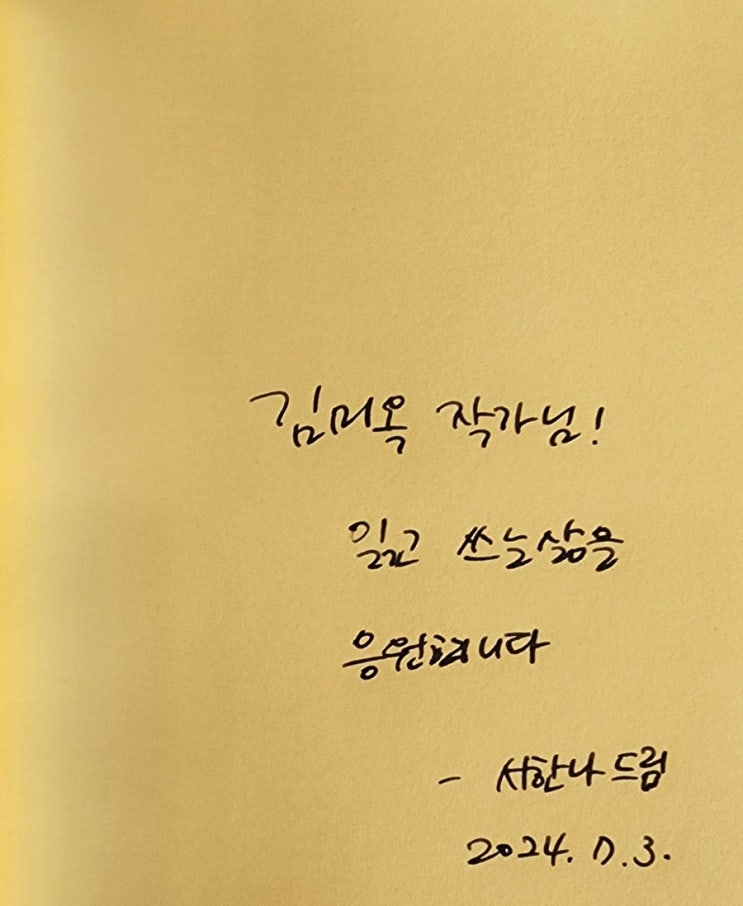 김미옥 작가님!
읽고 쓰는 삶을
응원합니다
- 서한나 드림
2024. 7. 3.